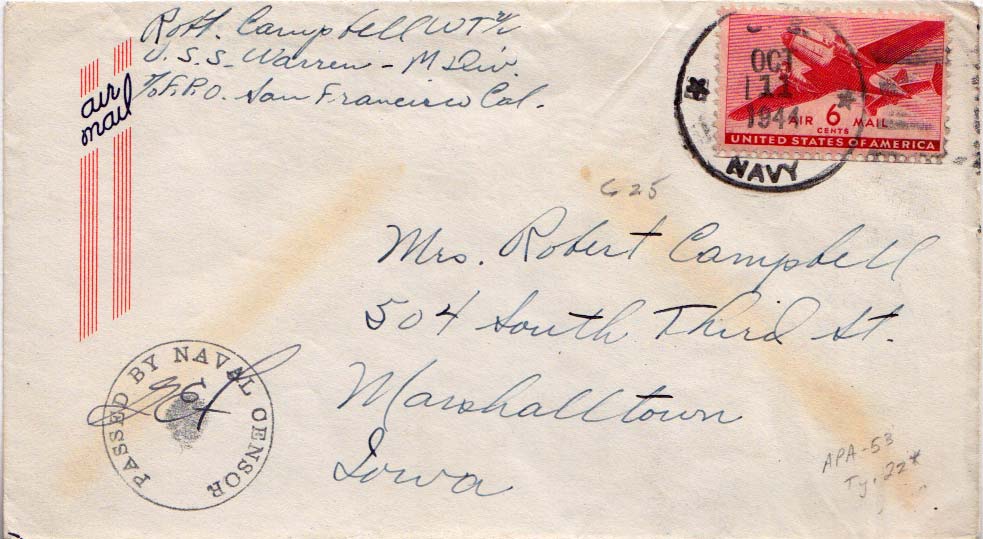 Robt. Campbell WT 2/c
U.S.S. Warren - M Div.
c/o F.P.O. San Francisco Cal.
air
mail
OCT
11
1944
NAVY
AIR 6 MAIL
CENTS
UNITED STATES OF AMERICA
C25
Mrs. Robert Campbell
504 South Third St.
Marshalltown
Iowa
PASSED BY NAVAL CENSOR
APA-53
Ty. 2z*